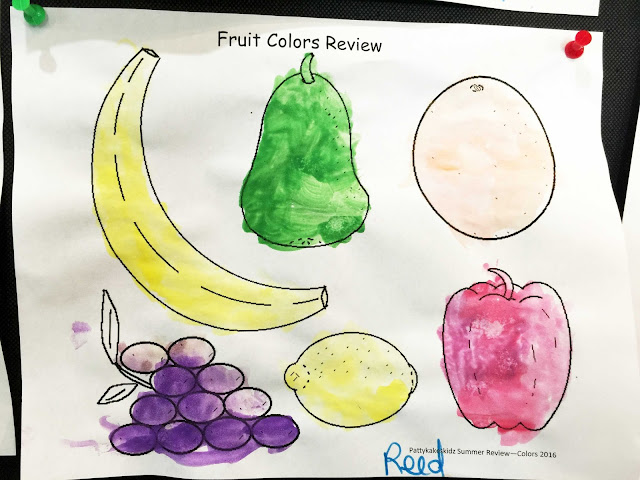 Fruit Colors Review
Pattykakeskidz Summer Review—Colors 2016
Reed